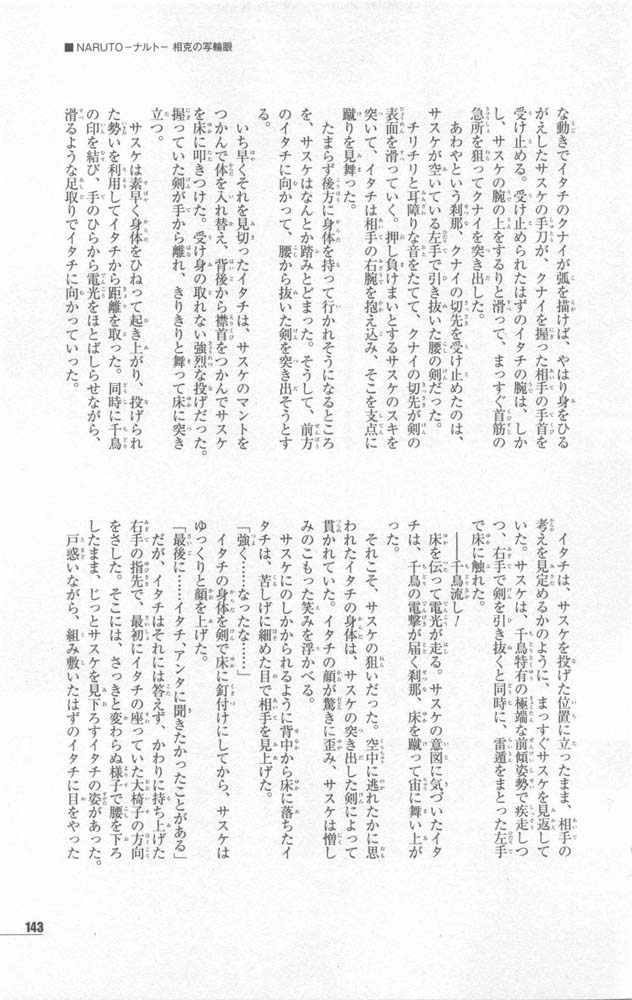 ■NARUTO－ナルト－ 相克の写輪眼
な動きでイタチのクナイが弧を描けば、やはり身をひる
がえしたサスケの手刀が、クナイを握った相手の手首を
受け止める。受け止められたはずのイタチの腕は、しか
し、サスケの腕の上をするりと滑って、まっすぐ首筋の
急所を狙ってクナイを突き出した。
あわやという刹那、クナイの切先を受け止めたのは、
サスケが空いている左手で引き抜いた腰の剣だった。
チリチリと耳障りな音をたてて、クナイの切先が剣の
表面を滑っていく。押し負けまいとするサスケのスキを
突いて、イタチは相手の右腕を抱え込み、そこを支点に
蹴りを見舞った。
たまらず後方に身体を持って行かれそうになるところ
を、サスケはなんとか踏みとどまった。そうして、前方
のイタチに向かって、腰から抜いた剣を突き出そうとす
る。
いち早くそれを見切ったイタチは、サスケのマントを
つかんで体を入れ替え、背後から襟首をつかんでサスケ
を床に叩きつけた。受け身の取れない強烈な投げだった。
握っていた剣が手から離れ、きりきりと舞って床に突き
立つ。
サスケは素早く身体をひねって起き上がり、投げられ
た勢いを利用してイタチから距離を取った。同時に千鳥
の印を結び、手のひらから電光をほとばしらせながら、
滑るような足取りでイタチに向かっていった。
イタチは、サスケを投げた位置に立ったまま、相手の
考えを見定めるかのように、まっすぐサスケを見返して
いた。サスケは、千鳥特有の極端な前傾姿勢で疾走しつ
つ、右手で剣を引き抜くと同時に、雷遁をまとった左手
で床に触れた。
――千鳥流し！
床を伝って電光が走る。サスケの意図に気づいたイタ
チは、千鳥の電撃が届く刹那、床を蹴って宙に舞い上が
った。
それこそ、サスケの狙いだった。空中に逃れたかに思
われたイタチの身体は、サスケの突き出した剣によって
貫かれていた。イタチの顔が驚きに歪み、サスケは憎し
みのこもった笑みを浮かべる。
サスケにのしかかられるように背中から床に落ちたイ
タチは、苦しげに細めた目で相手を見上げた。
「強く……なったな……」
イタチの身体を剣で床に釘付けにしてから、サスケは
ゆっくりと顔を上げた。
「最後に……イタチ、アンタに聞きたかったことがある」
だが、イタチはそれには答えず、かわりに持ち上げた
右手の指先で、最初にイタチの座っていた大椅子の方向
をさした。そこには、さっきと変わらぬ様子で腰を下ろ
したまま、じっとサスケを見下ろすイタチの姿があった。
戸惑いながら、組み敷いたはずのイタチに目をやった
143